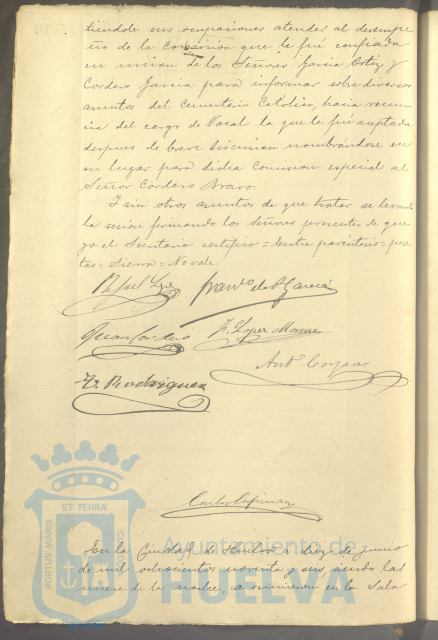 tiendole sus ocupaciones atender al desempe
ño de la Comision que le fué confiada
en union de los Señores Garcia Ortiz y
Cordero Garcia para informar sobre diversos
asuntos del Cementerio Católico, hacia renun
cia del cargo de Vocal la que le fué aceptada
despues de breve discusion nombrándose en
su lugar para dicha Comision especial al
Señor Cordero Bravo.
I sin otros asuntos de que tratar se levantó
la sesion firmando los Señores presentes de que
yo el Secretario certifico = Entre parentesis =
tas = Sierra = No vale.
Rafael
Garcia
Juan Cordero
F. Lopez
Antº
Fr Rodriguez
Carlos
ET TERRÆ
PORTUS MARIS
CUSTODIA
Ayuntamiento de
HUELVA
En la Ciudad de Huelva a diez de junio
de mil ochocientos noventa y seis, siendo las
nueve de la noche, se reunieron en la Sala